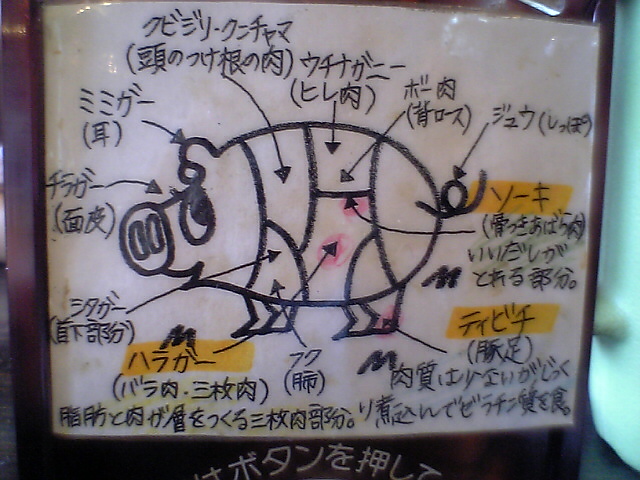 クビジリ・クンチャマ
(頭のつけ根の肉)
ウチナガニー
(ヒレ肉)
ボー肉
(背ロース)
ジュウ(しっぽ)
ミミガー
(耳)
チラガー
(面皮)
ソーキ
(骨つきあばら肉)
いいだしが
とれる部分。
シタガー
(首下部分)
ハラガー
(バラ肉・三枚肉)
脂肪と肉が層をつくる三枚肉部分。
フク
(肺)
ティビチ
(豚足)
肉質は少ないがじっく
り煮込んでゼラチン質を食。
はボタンを押して